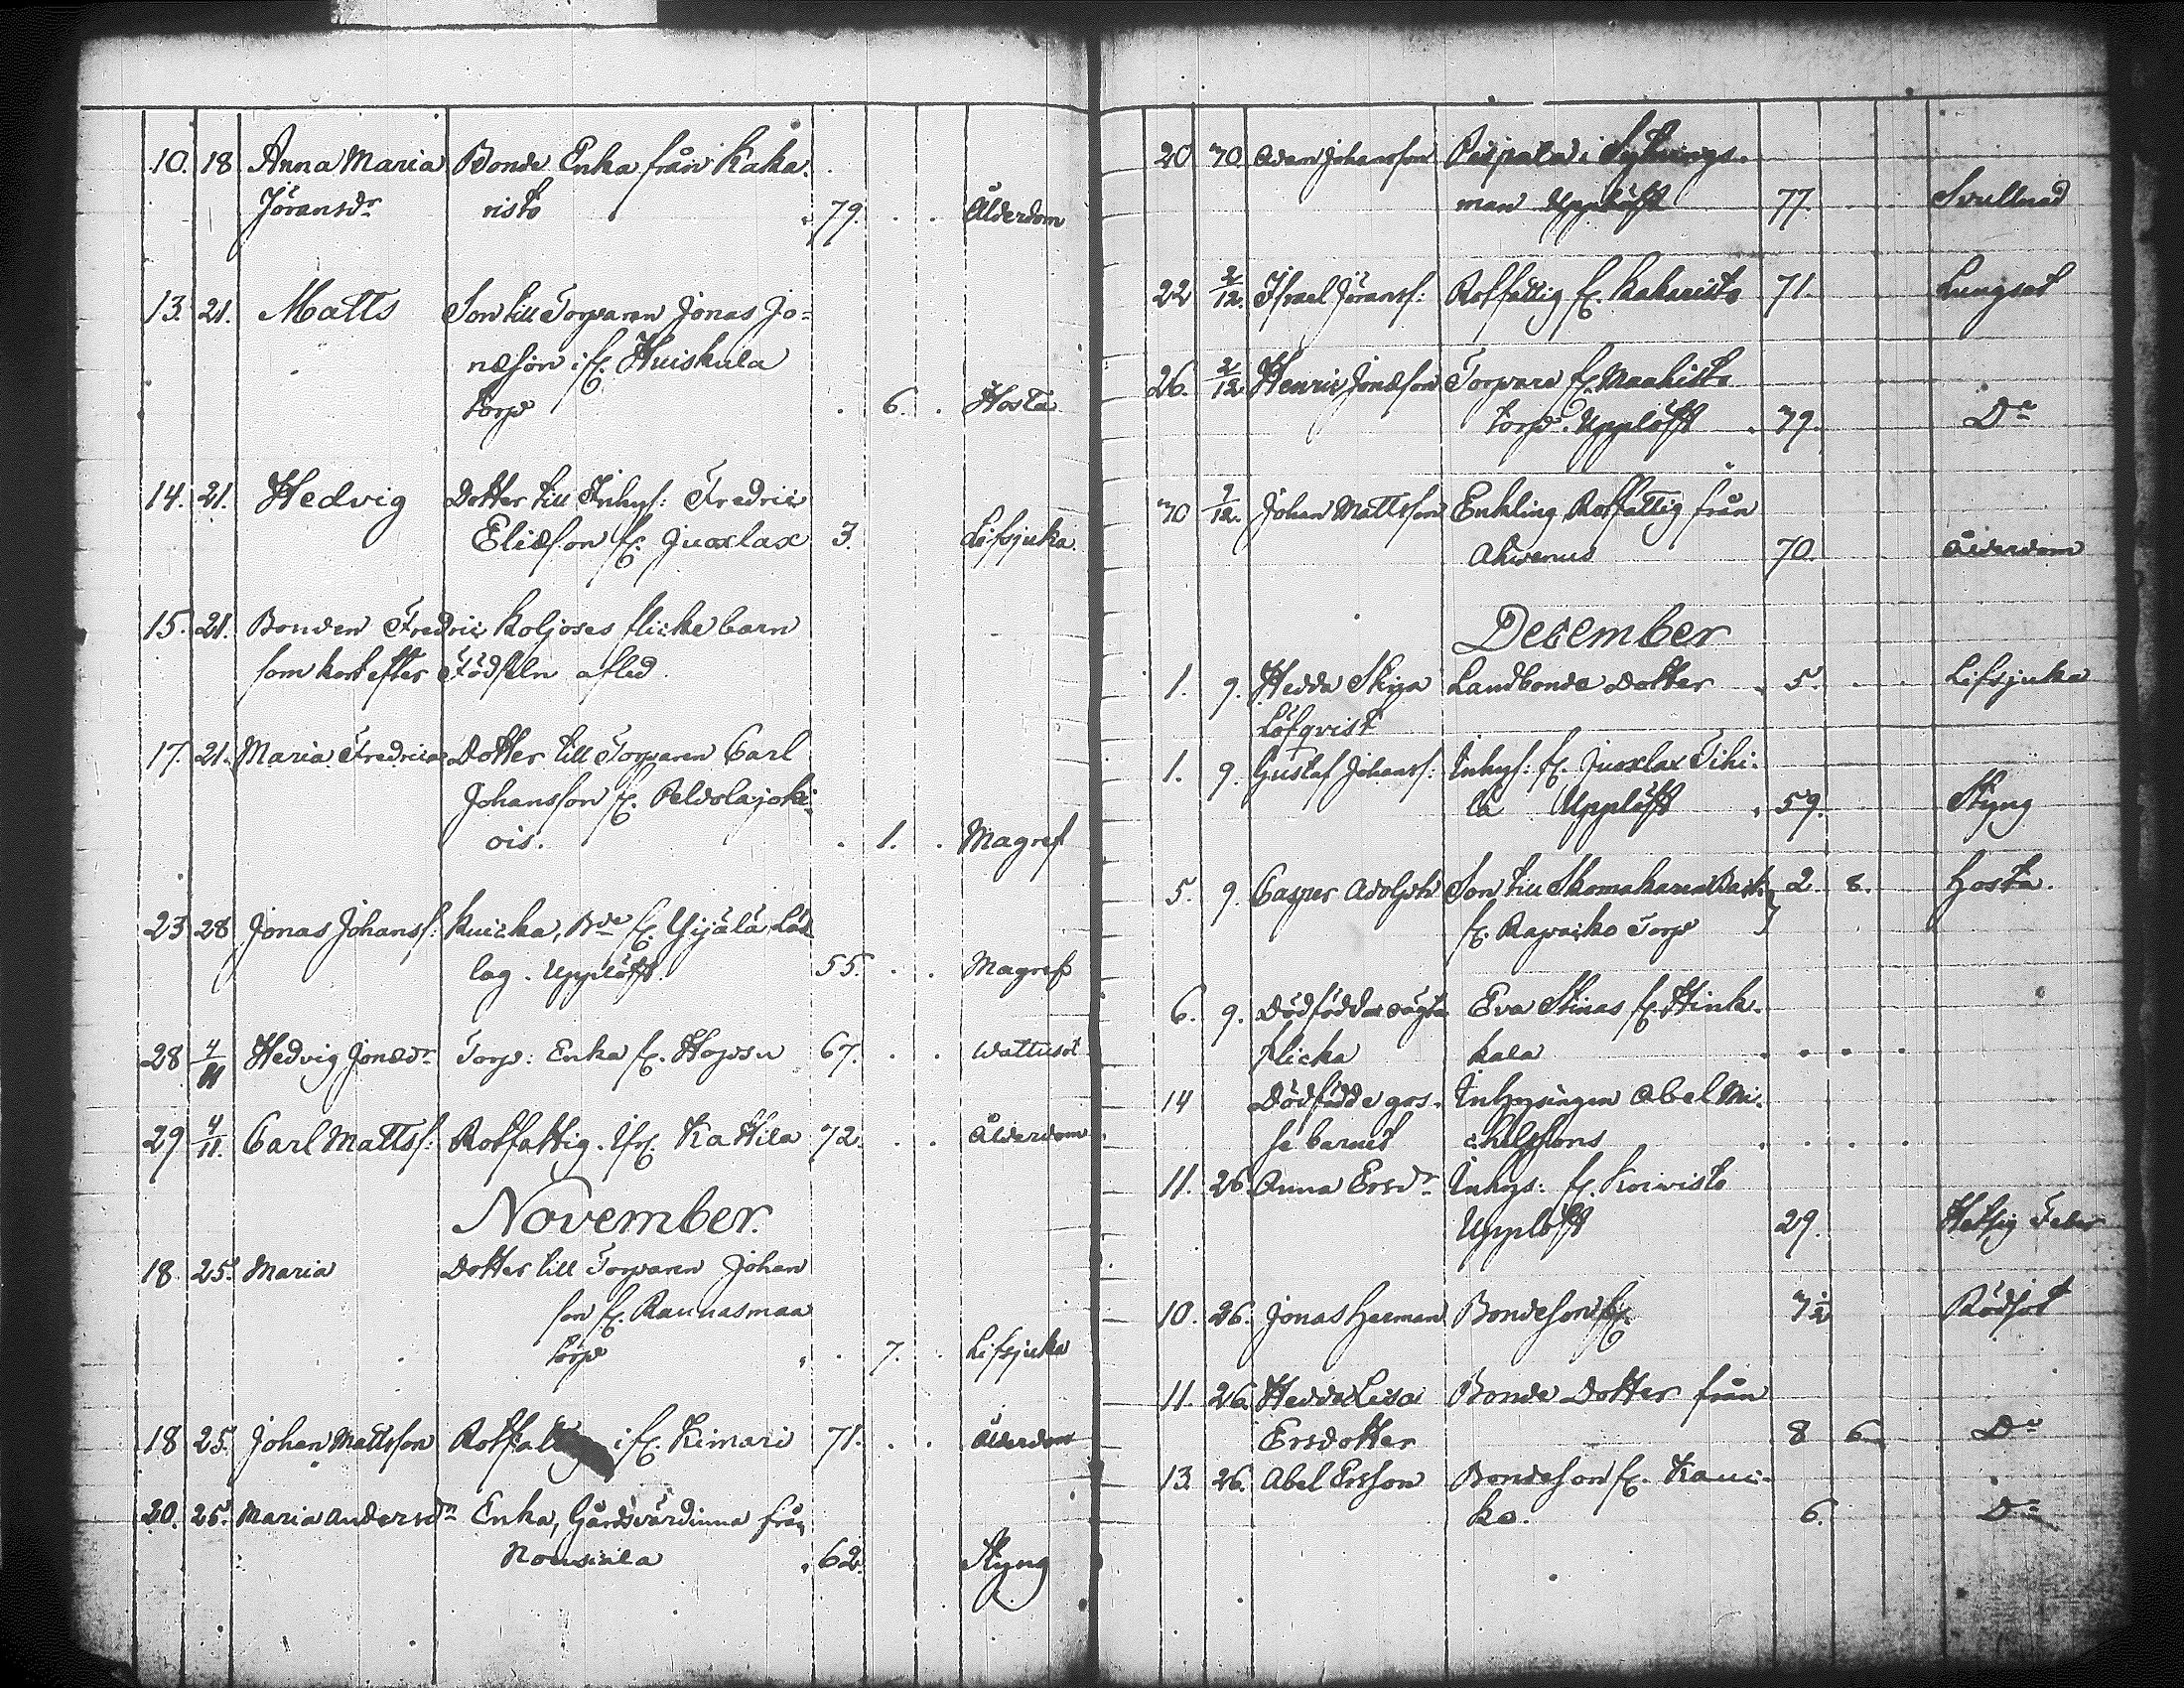 10. 18 Anna Maria Bonde Enka från Kaka.
Jöransdr risto 79. Ålderdom
13. 21. Matts Son till Torparen Jonas Jo=
næson i fr. Huiskula
torp 6. Hosta
14. 21. Hedvig Dotter till Inhys: Fredric
Eliæson fr. Juoxlax 3. Lifsjuka.
15. 21. Bonden Fredric Koljoses flickebarn
som kort efter Födseln afled.
17. 21. Maria Fredrica Dotter till Torparen Carl
Johansson fr. Peldolajoki
ois. 1. Magref
23 28 Jonas Johanss: Kuicka, Bde fr. Yijälä
lag. Upplöfft 55. Magref
28 4/11 Hedvig Jonædr Torp: Enka fr. Hopsu 67. Wattusot
29 4/11. Carl Mattss: Rotfattig. ifr. Kattila 72. Ålderdom
November.
18. 25. Maria Dotter till Torparen Johan
son fr. Raunasmaa
torp 7. Lifsjuka
18 25. Johan Mattsson Rotfattig i fr. Kimari 71. Ålderdom
20. 25. Maria Andersdr Enka, Gårdsvärdinna från
Nousiala 62. Styng
20 30 Adam Johansson
man Upplöfft 77. Svullnad
22 2/12. Israel Jöranss: Rotfattig fr. Kakaristo 71. Lungsot
26. 2/12 Henric Jonæson Torpare fr. Maahisto
torp. Upplöfft 79. Do
30 7/12. Johan Mattsson Enkling, Rotfattig från
Ahvenus 70. Ålderdom
December
1. 9. Hedda Stina Landbonde Dotter 5. Lifsjuka
Löfqvist
1. 9. Gustaf Johanss: Inhys: fr. Juoxlax Tihi.
lä Upplöfft 59. Styng
5. 9. Casper Adolph Son till Skomakaren 2. 8. Hosta.
fr. Rapaiko Torp
6. 9. Dödfödda oägta Eva Stinas fr. Hink.
flicka kala
14 Dödfödde gos. Inhysingen Abel Mi.
se barnet chelssons
11. 26 Anna Ersdr Inhys: fr. Koivisto
Upplöfft 29. Hetsig Feber
10. 26. Jonas Herman Bondeson fr. 3½ Rödsot
11. 26. Hedda Lisa Bonde Dotter från
Ersdotter 8 6 Do
13. 26. Abel Ersson Bondeson fr. Kaui.
ko. 6. Do